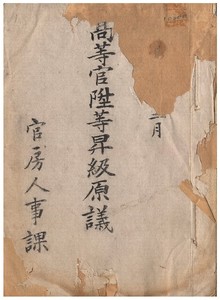 二月
高等官陞等昇級原議
官房人事課